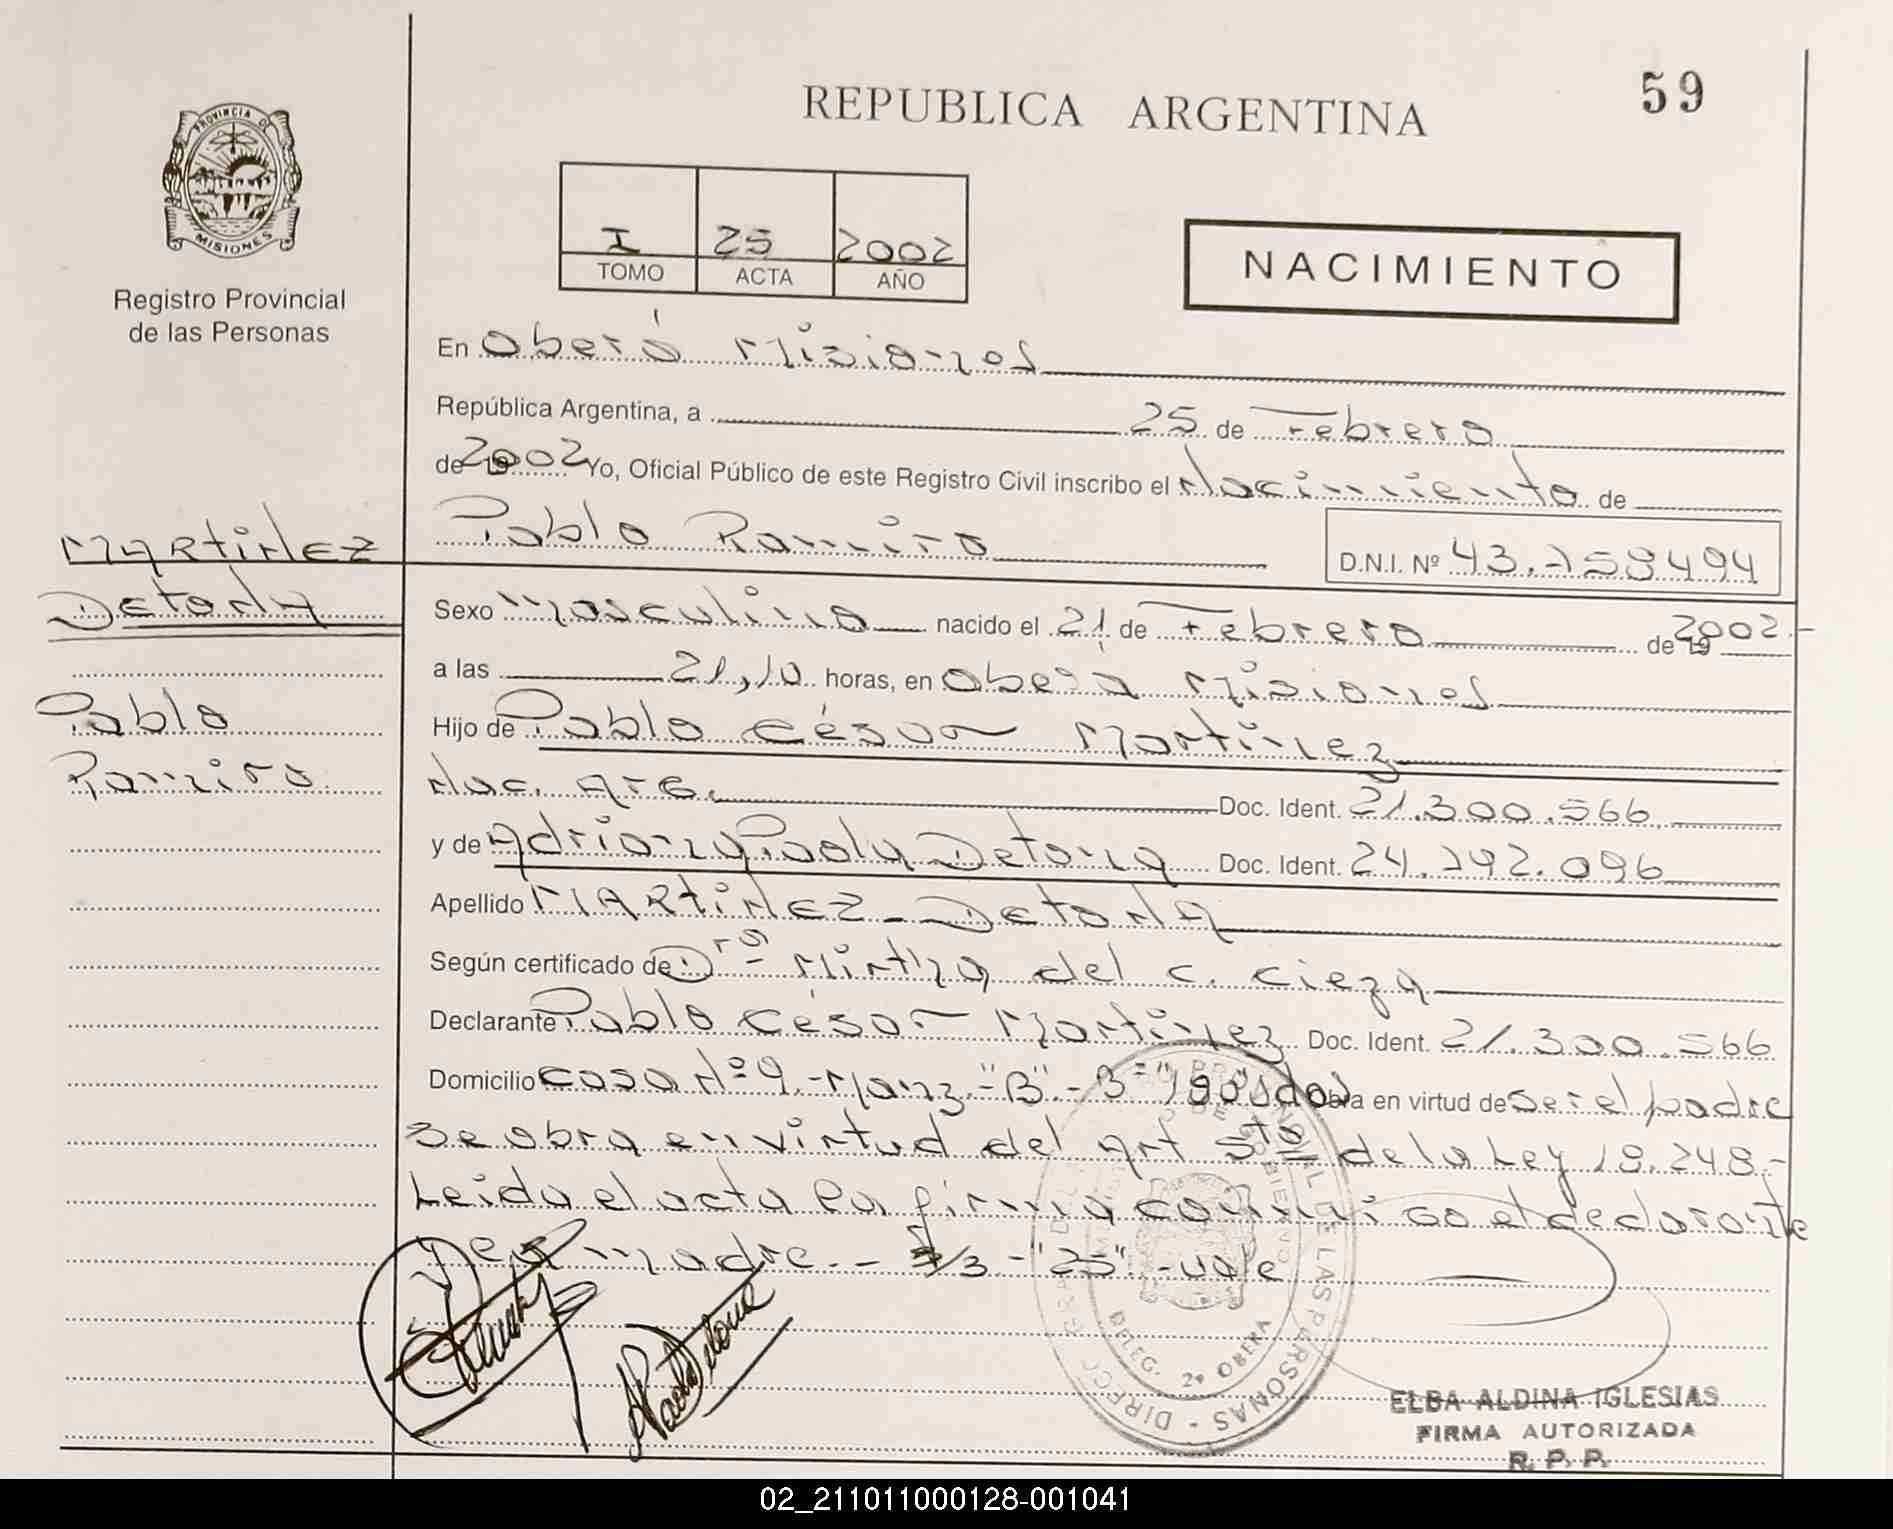 59
REPUBLICA ARGENTINA
PROVINCIA DE
MISIONES
Registro Provincial
de las Personas
I 25 2002
TOMO ACTA AÑO
NACIMIENTO
En Oberá Misiones
República Argentina, a 25 de Febrero
de 2002 Yo, Oficial Público de este Registro Civil inscribo el Nacimiento de
Pablo Ramiro
D.N.I. Nº 43.758494
MARTINEZ
DETONA
Pablo
Ramiro
Sexo masculino nacido el 21 de Febrero de 2002.-
a las 21,10 horas, en Oberá Misiones
Hijo de Pablo César Martinez
Nac. Arg. Doc. Ident. 21.300.566
y de Adriana Paola Detona Doc. Ident. 24.292.096
Apellido MARTINEZ - DETONA
Según certificado de Dra Mirtha del C. Cieza
Declarante Pablo César Martinez Doc. Ident. 21.300.566
Domicilio Casa Nº 9.-Manz."B".-Bº "180" Obra en virtud de ser el padre
se obra en virtud del Art 5to de la Ley 18.248.-
Leida el acta la firma conmigo el declarante
y la madre.- -"25"-vale
DELEG. 2ª OBERA
ELBA ALDINA IGLESIAS
FIRMA AUTORIZADA
R. P. P.
02_211011000128-001041